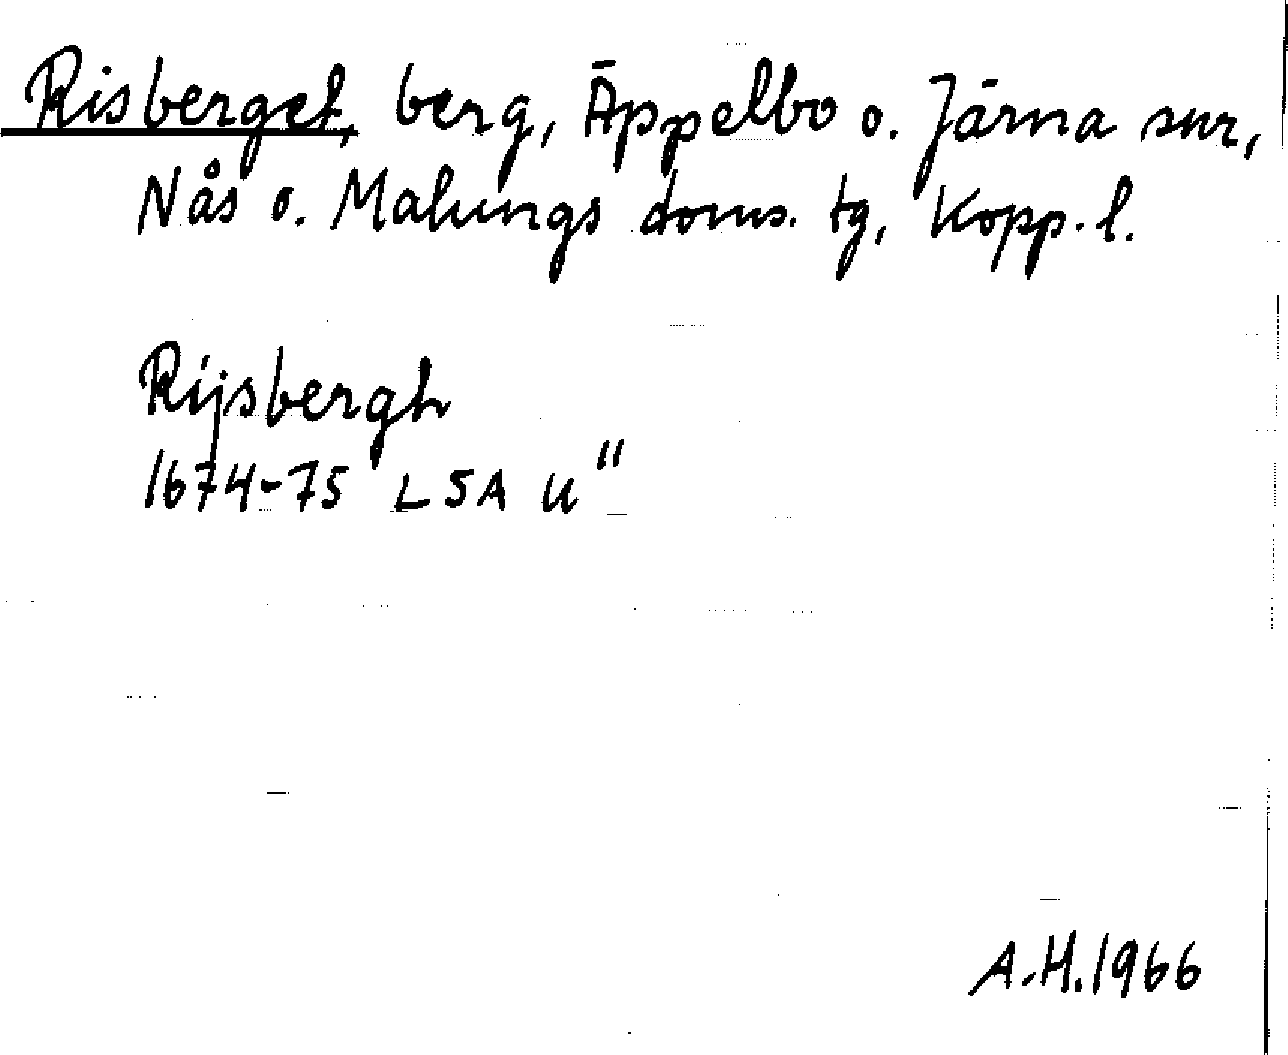 Risberget, berg, Äppelbo o. Järna snr,
Nås o. Malungs doms. tg, Kopp. l.
Rijsbergh
1674-75 LSA U"
A.H. 1966